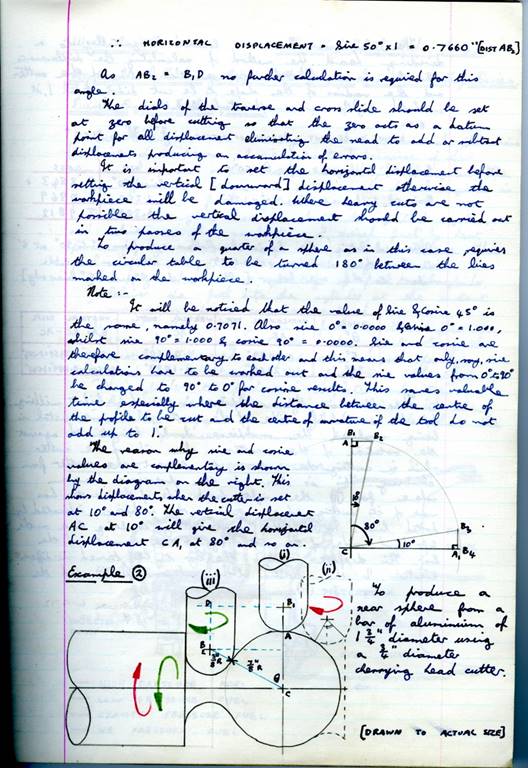 ∴ HORIZONTAL DISPLACEMENT = Sine 50° x 1 = 0.7660" [DIST AB2]
As AB2 = B1D no further calculation is required for this
angle.
The dials of the traverse and cross slide should be set
at zero before cutting so that the zero acts as a datum
point for all displacement eliminating the need to add or subtract
displacements producing an accumulation of errors.
It is important to set the horizontal displacement before
setting the vertical [downward] displacement otherwise the
workpiece will be damaged. Where heavy cuts are not
possible the vertical displacement should be carried out
in two passes of the workpiece.
To produce a quarter of a sphere as in this case requires
the circular table to be turned 180° between the lines
marked on the workpiece.
Note :-
It will be noticed that the value of Sine & Cosine 45° is
the same, namely 0.7071. Also sine 0° = 0.0000 & Cosine 0° = 1.000,
whilst sine 90° = 1.000 & cosine 90° = 0.0000. Sine and cosine are
therefore complementary to each other and this means that only, say, sine
calculations have to be worked out and the sine values from 0° to 90°
be changed to 90° to 0° for cosine results. This saves valuable
time especially where the distance between the centre of
the profile to be cut and the centre of curvature of the tool do not
add up to 1".
The reason why sine and cosine
values are complementary is shown
by the diagram on the right. This
shows displacements when the cutter is set
at 10° and 80°. The vertical displacement
AC at 10° will give the horizontal
displacement CA, at 80° and so on.
B1 B2
A
80°
10°
B3
C A1 B4
Example ②
(iii) (i) (ii)
D1 B1
A
B2
E
3/8"R 7/8"R
θ
C
To produce a
near sphere from a
bar of aluminium of
1 3/4" diameter using
a 3/4" diameter
cherrying head cutter.
[DRAWN TO ACTUAL SIZE]